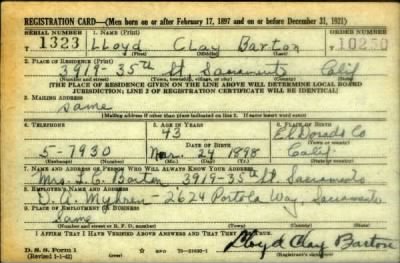 REGISTRATION CARD—(Men born on or after February 17, 1897 and on or before December 31, 1921)
SERIAL NUMBER 1. NAME (Print) ORDER NUMBER
1323 Lloyd Clay Barton 10250
(First) (Middle) (Last)
2. PLACE OF RESIDENCE (Print)
3919-35th St Sacramento Calif
(Number and street) (Town, township, village, or city) (County) (State)
[THE PLACE OF RESIDENCE GIVEN ON THE LINE ABOVE WILL DETERMINE LOCAL BOARD
JURISDICTION; LINE 2 OF REGISTRATION CERTIFICATE WILL BE IDENTICAL]
3. MAILING ADDRESS
Same
[Mailing address if other than place indicated on line 2. If same insert word same]
4. TELEPHONE 5. AGE IN YEARS 6. PLACE OF BIRTH
43 El Dorado Co
DATE OF BIRTH
5-7930 Mar. 24 1898 Calif.
(Exchange) (Number) (Mo.) (Day) (Yr.) (State or country)
7. NAME AND ADDRESS OF PERSON WHO WILL ALWAYS KNOW YOUR ADDRESS
Mrs. L.C. Barton 3919-35th St Sacramento
8. EMPLOYER'S NAME AND ADDRESS
D. A. Myhren - 2624 Portola Way, Sacramento
9. PLACE OF EMPLOYMENT OR BUSINESS
Same
(Number and street or R. F. D. number) (Town) (County) (State)
I AFFIRM THAT I HAVE VERIFIED ABOVE ANSWERS AND THAT THEY ARE TRUE.
D. S. S. Form 1
(Revised 1-1-42) (over) Lloyd Clay Barton
(Registrant's signature)